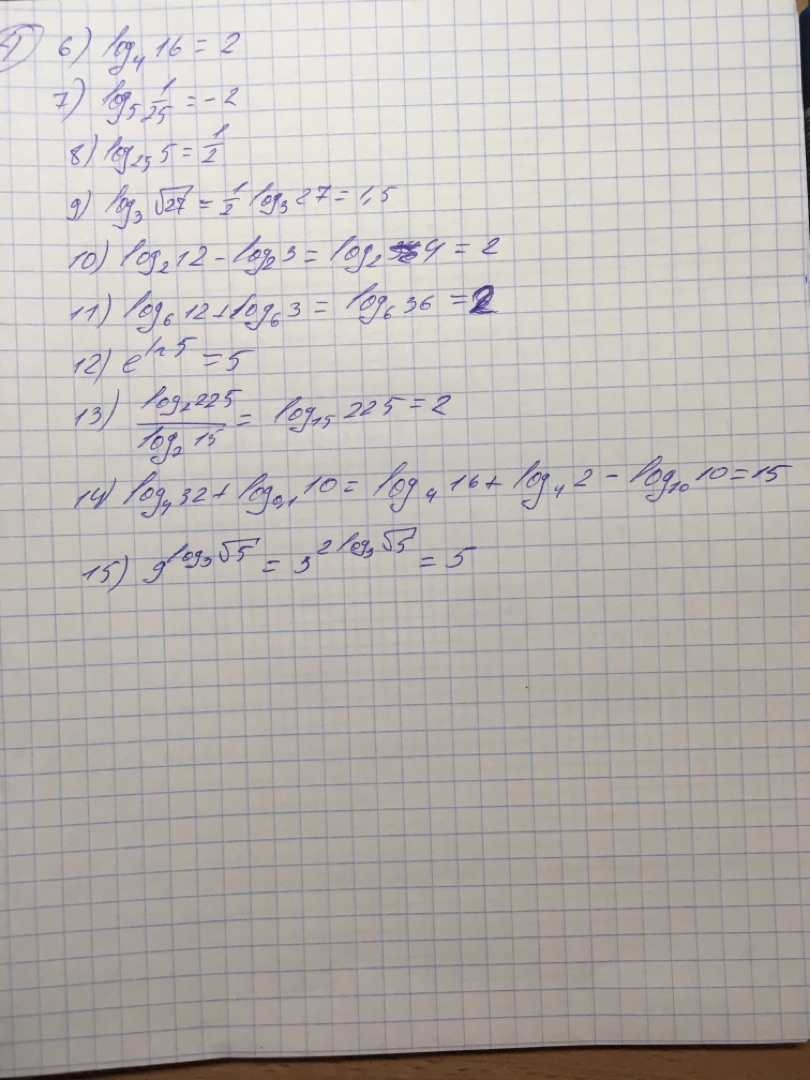 1) 6) log₄ 16 = 2
7) log₅ 1/25 = -2
8) log₂₅ 5 = 1/2
9) log₃ √27 = 1/2 log₃ 27 = 1,5
10) log₂ 12 - log₂ 3 = log₂ 4 = 2
11) log₆ 12 + log₆ 3 = log₆ 36 = 2
12) e^ln 5 = 5
13) log₂ 225 / log₂ 15 = log₁₅ 225 = 2
14) log₄ 32 + log₀,₁ 10 = log₄ 16 + log₄ 2 - log₁₀ 10 = 15
15) 9^log₃ √5 = 3^2 log₃ √5 = 5